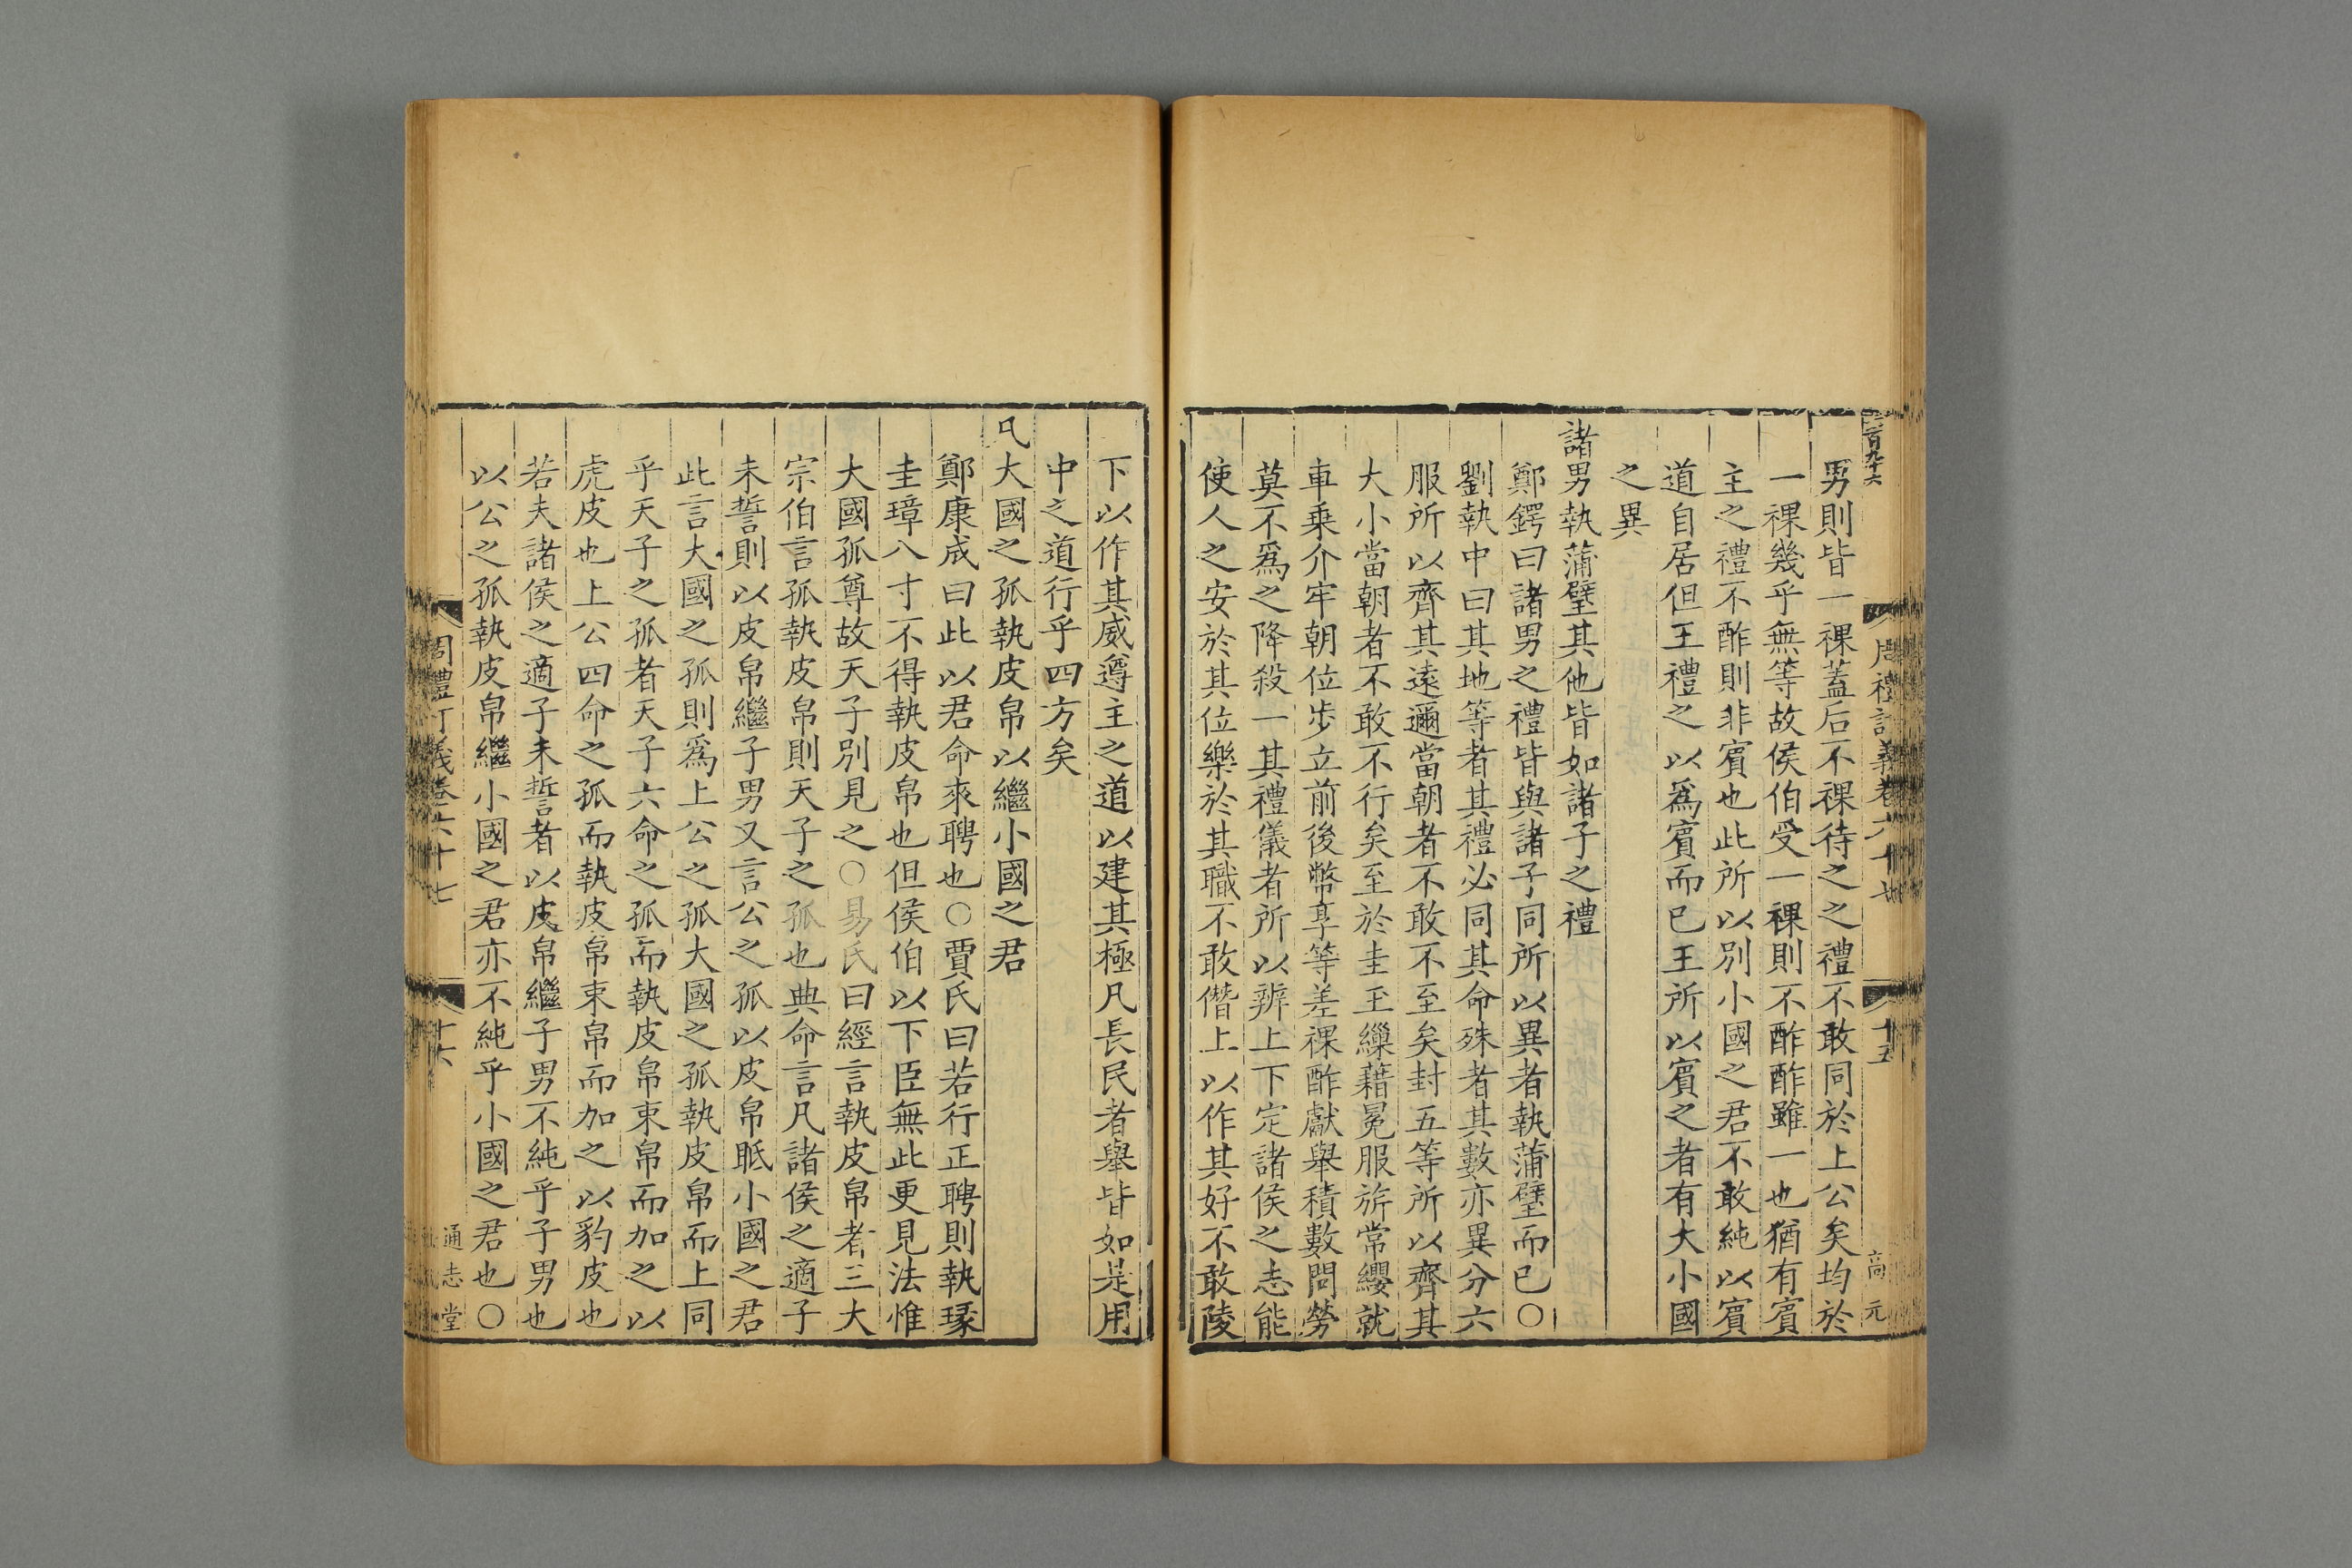 男則皆一祼蓋后不祼待之之禮不敢同於上公矣均於
一祼幾乎無等故侯伯受一祼則不酢酢雖一也猶有賓
主之禮不酢則非賓也此所以別小國之君不敢純以賓
道自居但王禮之以爲賓而已王所以賓之者有大小國
之異
諸男執蒲璧其他皆如諸子之禮
鄭鍔曰諸男之禮皆與諸子同所以異者執蒲璧而已〇
劉執中曰其地等者其禮必同其命殊者其數亦異分六
服所以齊其遠邇當朝者不敢不至矣封五等所以齊其
大小當朝者不敢不行矣至於圭玉繅藉冕服旂常纓就
車乗介牢朝位步立前後幣享等差祼酢獻舉積數問勞
莫不爲之降殺一其禮儀者所以辨上下定諸侯之志能
使人之安於其位樂於其職不敢僭上以作其好不敢陵
周禮訂義卷六十七
十五
高元
下以作其威遵主之道以建其極凡長民者舉皆如是用
中之道行乎四方矣
凡大國之孤執皮帛以繼小國之君
鄭康成曰此以君命來聘也〇賈氏曰若行正聘則執瑑
圭璋八寸不得執皮帛也但侯伯以下臣無此更見法惟
大國孤尊故天子別見之〇易氏曰經言執皮帛者三大
宗伯言孤執皮帛則天子之孤也典命言凡諸侯之適子
未誓則以皮帛繼子男又言公之孤以皮帛眂小國之君
此言大國之孤則爲上公之孤大國之孤執皮帛而上同
乎天子之孤者天子六命之孤而執皮帛束帛而加之以
虎皮也上公四命之孤而執皮帛束帛而加之以豹皮也
若夫諸侯之適子未誓者以皮帛繼子男不純乎子男也
以公之孤執皮帛繼小國之君亦不純乎小國之君也〇
周禮訂義卷六十七
十六
通志堂